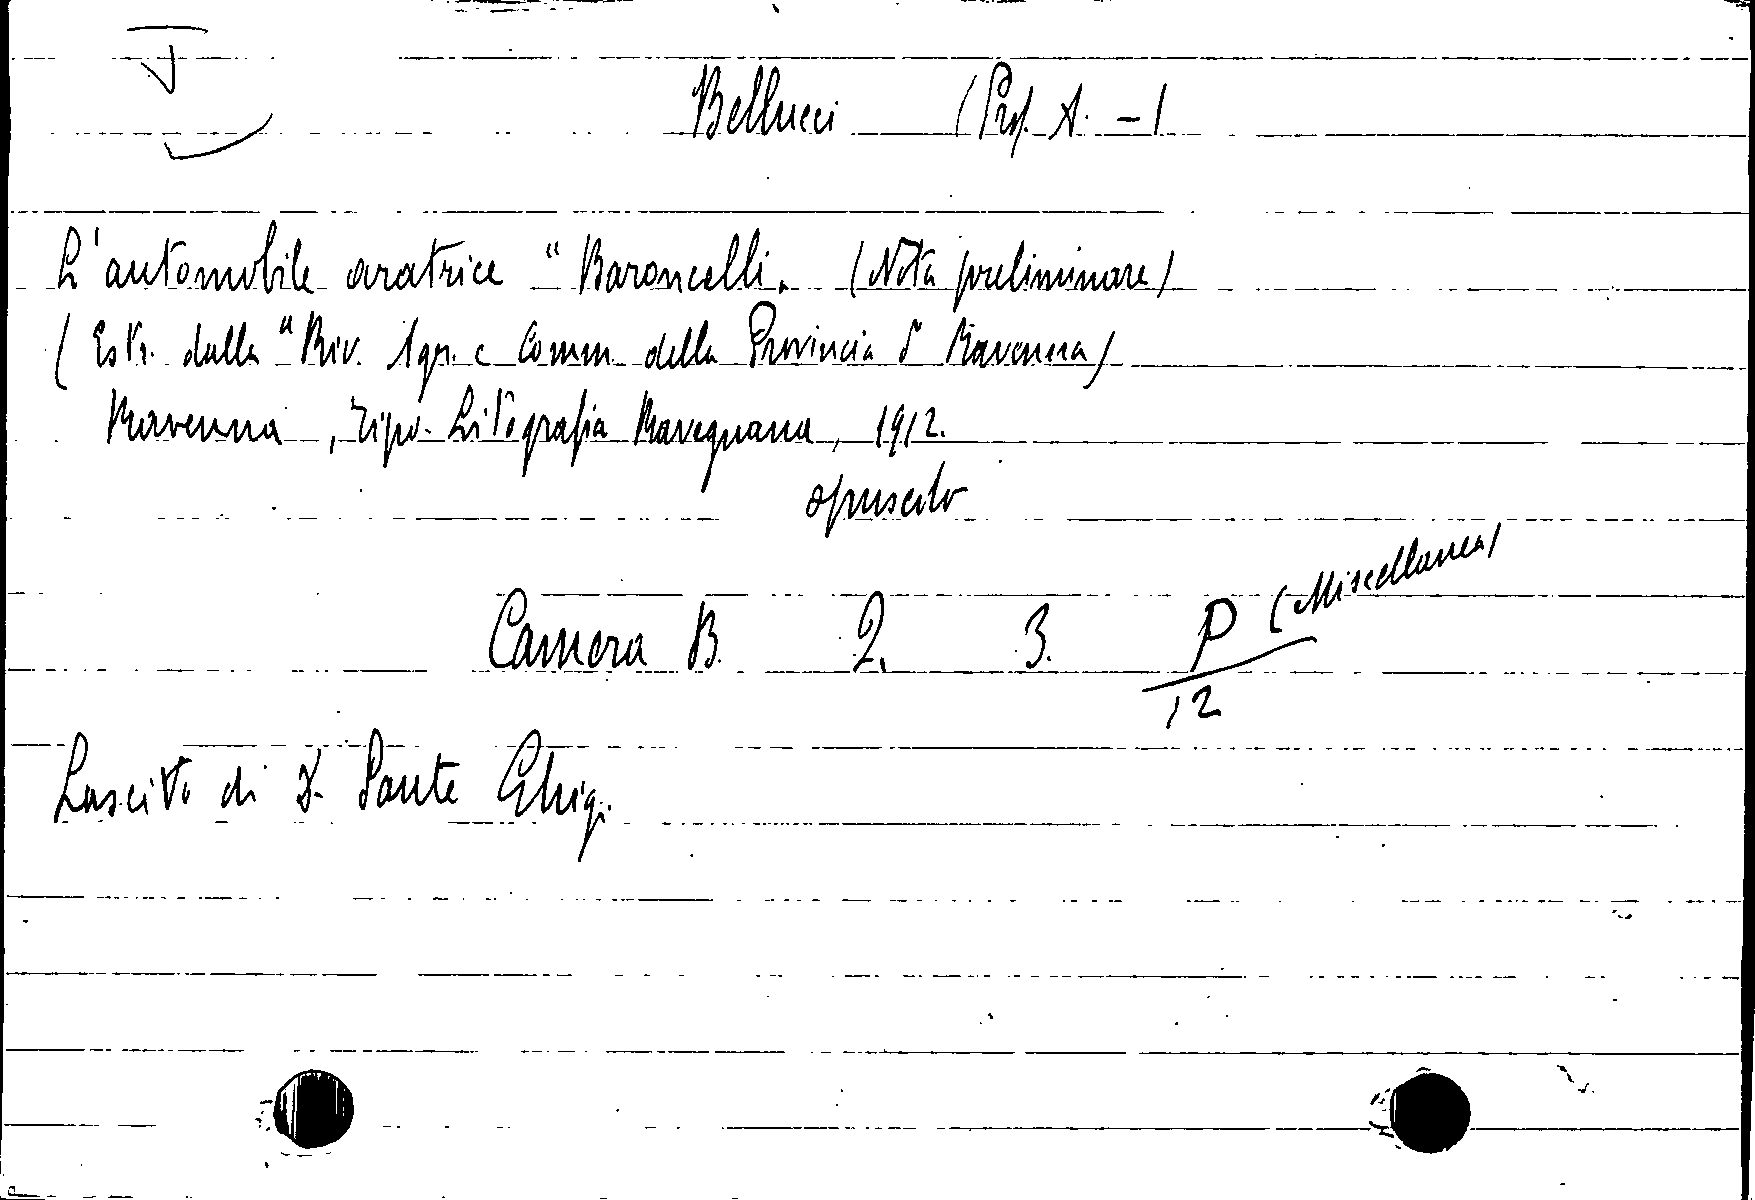 Bellucci (Prof. A. -)
L'automobile aratrice "Baroncelli". (Nota preliminare)
(Estr. dalla "Riv. Agr. e Comm. della Provincia di Ravenna)
Ravenna, Tipo-Litografia Ravegnana, 1912.
opuscolo
(Miscellanea)
Camera B. 2. 3. P
12
Lascito di D. Sante Ghigi